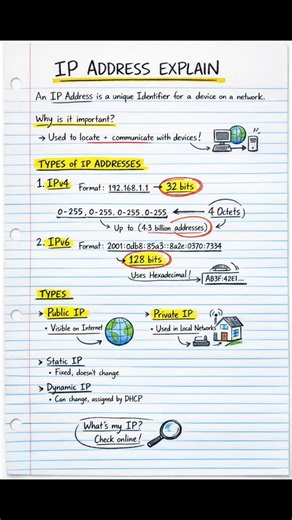 IP ADDRESS EXPLAIN
An IP Address is a unique Identifier for a device on a network.
Why is it important?
→ Used to locate + communicate with devices!
TYPES of IP ADDRESSES
1. IPv4 Format: 192.168.1.1 → 32 bits
0-255, 0-255, 0-255, 0-255 ← 4 Octets)
Up to (4.3 billion addresses)
2. IPv6 Format: 2001:0db8:85a3::8a2e:0370:7334
→ 128 bits
Uses Hexadecimal! AB3F:42E1...
TYPES
> Public IP
• Visible on Internet
> Private IP
• Used in Local Networks
> Static IP
• Fixed, doesn't change
> Dynamic IP
• Can change, assigned by DHCP
What's my IP?
Check online!